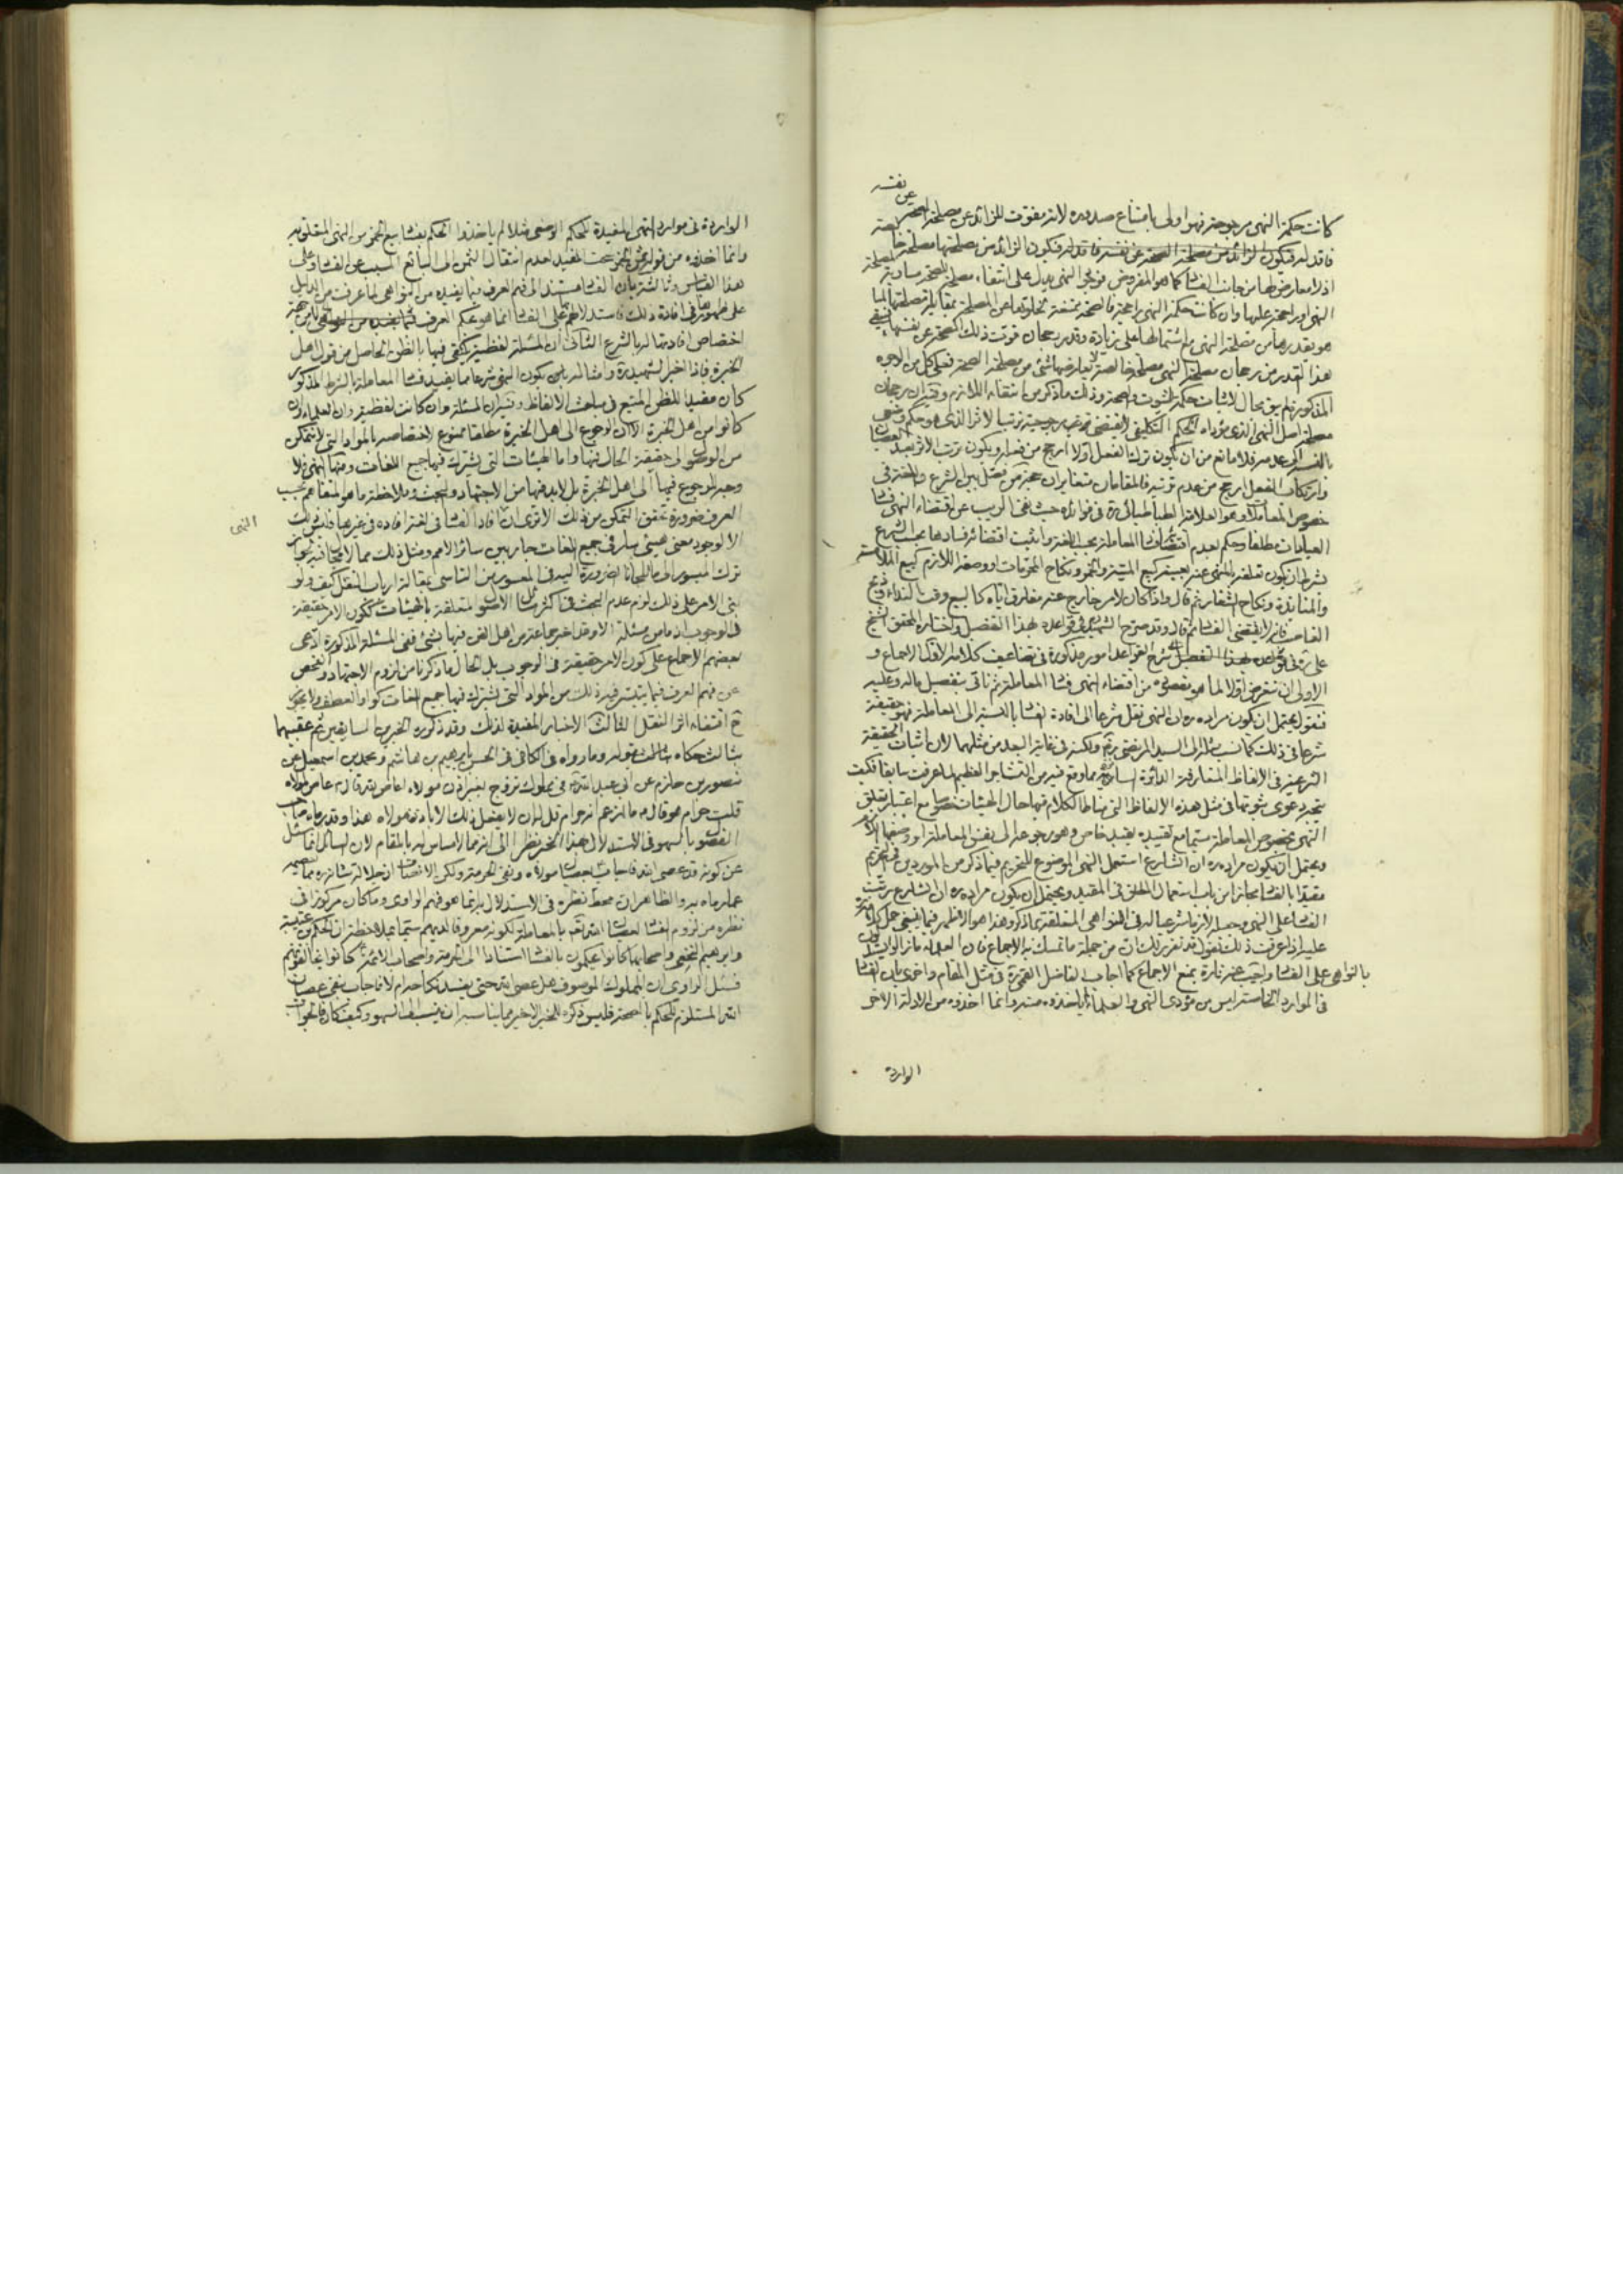 نفسه
عن
كانت حكمة النهى مرجوحة فهو اولى بامتناع صدوره لانه مفوت للزائد عن مصلحة الصحة
فاقد له فيكون الزائد من مصلحة الصحة عن نفسه فاقد له فيكون الزائد من مصلحتها مصلحة
اذ لا معارض لها من جانب الفساد كما هو المفروض فوقوع النهى يدل على انتفاء مصلحة الصحة مساوية
النهى او راجحة عليها وان كانت حكمة النهى راجحة فالصحة ممتنعة لخلوها عن المصلحة
هو بقدرها من مصلحة النهى
هذا القدر من رجحان مصلحة النهى مصلحة خالصة لا يعارضها شئ من مصلحة الصحة فعلى كل من الوجوه
المذكورة لم يبق مجال لاثبات حكمة لثبوت الصحة وذلك ما ذكر من انتفاء اللازم وفيه ان رجحان
مصلحة اصل النهى الذى مؤداه الحكم التكليفى لا يقتضى مرجوحية ترتيب الاثر الذى هو حكم وضعى
بالنسبة الى عدمه فلا مانع من ان يكون ترك الفعل اولا ارجح من فعله ويكون ترتب الاثر بعد
وارتكاب الفعل ارجح من عدم ترتبه فالمقامان متغايران
خصوص المعاملات وهو العلامة الطباطبائى ره فى فوائده حيث نفى الريب عن اقتضاء النهى فساد
العبادات مطلقا وحكم بعدم اقتضائه فساد المعاملة بحسب اللغة واثبت اقتضائه فسادها بحسب الشرع
بشرط ان يكون تعلقه بالمنهى عنه بعينه كبيع الميتة والخمر ونكاح المحرمات او وصفه اللازم كبيع الملامسة
والمنابذة ونكاح الشغار ثم قال واذا كان لامر خارج عنه مفارق اياه كالبيع وقت النداء وذبح
الغاصب فانه لا يقتضى الفساد ثم قال وقد صرح الشهيد فى قواعده بهذا التفصيل واختاره المحقق الشيخ
على ره فى شرح القواعد امور مذكورة فى تضاعيف كلامه الاول الاجماع و
الاولى ان نتعرض اولا لما هو بصدده من اقتضاء النهى فساد المعاملة ثم ناتى بتفصيل ماله وعليه
فنقول يحتمل ان يكون مراده ره ان النهى نقل شرعا الى افادة الفساد بالنسبة الى المعاملة فهو حقيقة
شرعا فى ذلك كما نسب مثله الى السيد المرتضى ره ولكنه فى غاية البعد من مثلهما لان اثبات الحقيقة
الشرعية فى الالفاظ المتعارفة الدائرة السائرة مما وقع فيه من التشاجر العظيم لما عرفت سابقا فكيف
بمجرد دعوى ثبوتها فى مثل هذه الالفاظ التى مناط الكلام فيها حال الهيئات خصوصا مع اعتبار تعلق
النهى بخصوص المعاملة سيما مع تقييده بقيد خاص وهو رجوعه الى نفس المعاملة او وصفها اللازم
ويحتمل ان يكون مراده ره ان الشارع استعمل النهى الموضوع للتحريم فيما ذكر من الموردين فى التحريم
مقيدا بالفساد مجازا من باب استعمال المطلق فى المقيد ويحتمل ان يكون مراده ره ان الشارع رتب
الفساد على النهى وجعله لازما شرعيا له فى النواهى المتعلقة بما ذكر وهذا هو الاظهر فينبغى حمل كلامه
عليه اذا عرفت ذلك فنقول قد تقرر ذلك ان من جملة ما تمسك به الاجماع فان العلماء ما زالوا يستدلون
بالنواهى على الفساد واجيب عنه تارة بمنع الاجماع كما اجاب الفاضل القمى ره فى مثل المقام واخرى بان الفساد
فى الموارد الخاصة ليس من مؤدى النهى والعلماء لم ياخذوه منه وانما اخذوه من الادلة الاخر
الواردة
الواردة فى موارد النهى المفيدة للحكم الوضعى مثلا لم ياخذوا الحكم بفساد بيع الخمر من النهى المتعلق به
وانما اخذوه من قوله ثمن الخمر سحت المفيد لعدم انتقال الثمن الى البائع المسبب عن الفساد وعلى
هذا القياس وثالثة بان الفساد مستند الى فهم العرف فيما يفيده من النواهى لما عرفت من الدليل
على ظهورها فى افادة ذلك فاستدلالهم على الفساد انما هو بحكم العرف
اختصاص افادتها له بالشرع الثانى ان المسئلة لفظية يكتفى فيها بالظن الحاصل من قول اهل
الخبرة فاذا اخبر الشهيد ره وامثاله بان كون النهى شرعا مما يفيد فساد المعاملة بالشرط المذكور
كان مفيدا للظن المتبع فى مباحث الالفاظ وفيه ان المسئلة وان كانت لفظية وان العلماء وان
كانوا من اهل الخبرة الا ان الرجوع الى اهل الخبرة مطلقا ممنوع لاختصاصه بالمواد التى لا يتمكن
من الوصول الى حقيقة الحال فيها واما الهيئات التى يشترك فيها جميع اللغات ومنها النهى فلا
وجه للرجوع فيها الى اهل الخبرة بل لابد فيها من الاجتهاد والبحث وملاحظة ما هو المتفاهم بحسب
العرف ضرورة تحقق التمكن من ذلك الا ترى ان النهى ان افاد الفساد فى لغة افاده فى غيرها وليس ذلك
الا لوجود معنى هيئى سار فى جميع اللغات جار بين سائر الامم ومثل ذلك مما لا مجال فيه لتجويز
ترك الميسور
بنى الامر على ذلك لزم عدم البحث فى اكثر مسائل الاصول المتعلقة بالهيئات ككون الامر حقيقة
فى الوجوب اذ ما من مسئلة الا وقد اخبر جماعة من اهل الفن فيها بشئ ففى المسئلة المذكورة ادعى
بعضهم الاجماع على كون الامر حقيقة فى الوجوب بل الحال ما ذكرنا من لزوم الاجتهاد والفحص
عن فهم العرف فيما يتيسر فيه ذلك من المواد التى يشترك فيها جميع اللغات كواو العطف ولا يجوز
ح اقتفاء اثر النقل الثالث الاخبار المفيدة لذلك وقد ذكر ره الخبرين السابقين ثم عقبهما
بثالث حكاه بقوله وما رواه فى الكافى فى الحسن بابراهيم بن هاشم ومحمد بن اسمعيل عن
منصور بن حازم عن ابى عبد الله ع فى مملوك تزوج بغير اذن مولاه اعاص لله قال ع عاص لمولاه
قلت حرام هو قال ما ازعم انه حرام قل له ان لا يفعل ذلك الا باذن مولاه هذا وقد رماه صاحب
الفصول بالسهو فى الاستدلال بهذا الخبر نظرا الى انه مما لا مساس له بالمقام لان السائل انما سئل
عن كونه قد عصى الله فاجاب بعصيان مولاه ونفى الحرمة ولكن الانصاف ان جلالة شانه ره مما يعصمه
عما رماه به والظاهر ان محط نظره فى الاستدلال به انما هو فهم الراوى وما كان مركوزا فى
نظره من لزوم الفساد لعصيان الله تعالى بالمعاملة لكونه معروفا لديهم سيما بملاحظة ان الحكم بن عتيبة
وابراهيم النخعى واصحابهما كانوا يحكمون بالفساد استنادا الى الحرمة واصحاب الائمة ع كانوا يخالفونهم
فسئل الراوى ان المملوك الموصوف هل عصى الله حتى يفسد نكاحه ام لا فاجاب بنفى عصيان
الله المستلزم للحكم بالصحة فليس ذكره للخبر الاخير مما يناسبه ان ينسب الى السهو وكيف كان فالجواب
النهى